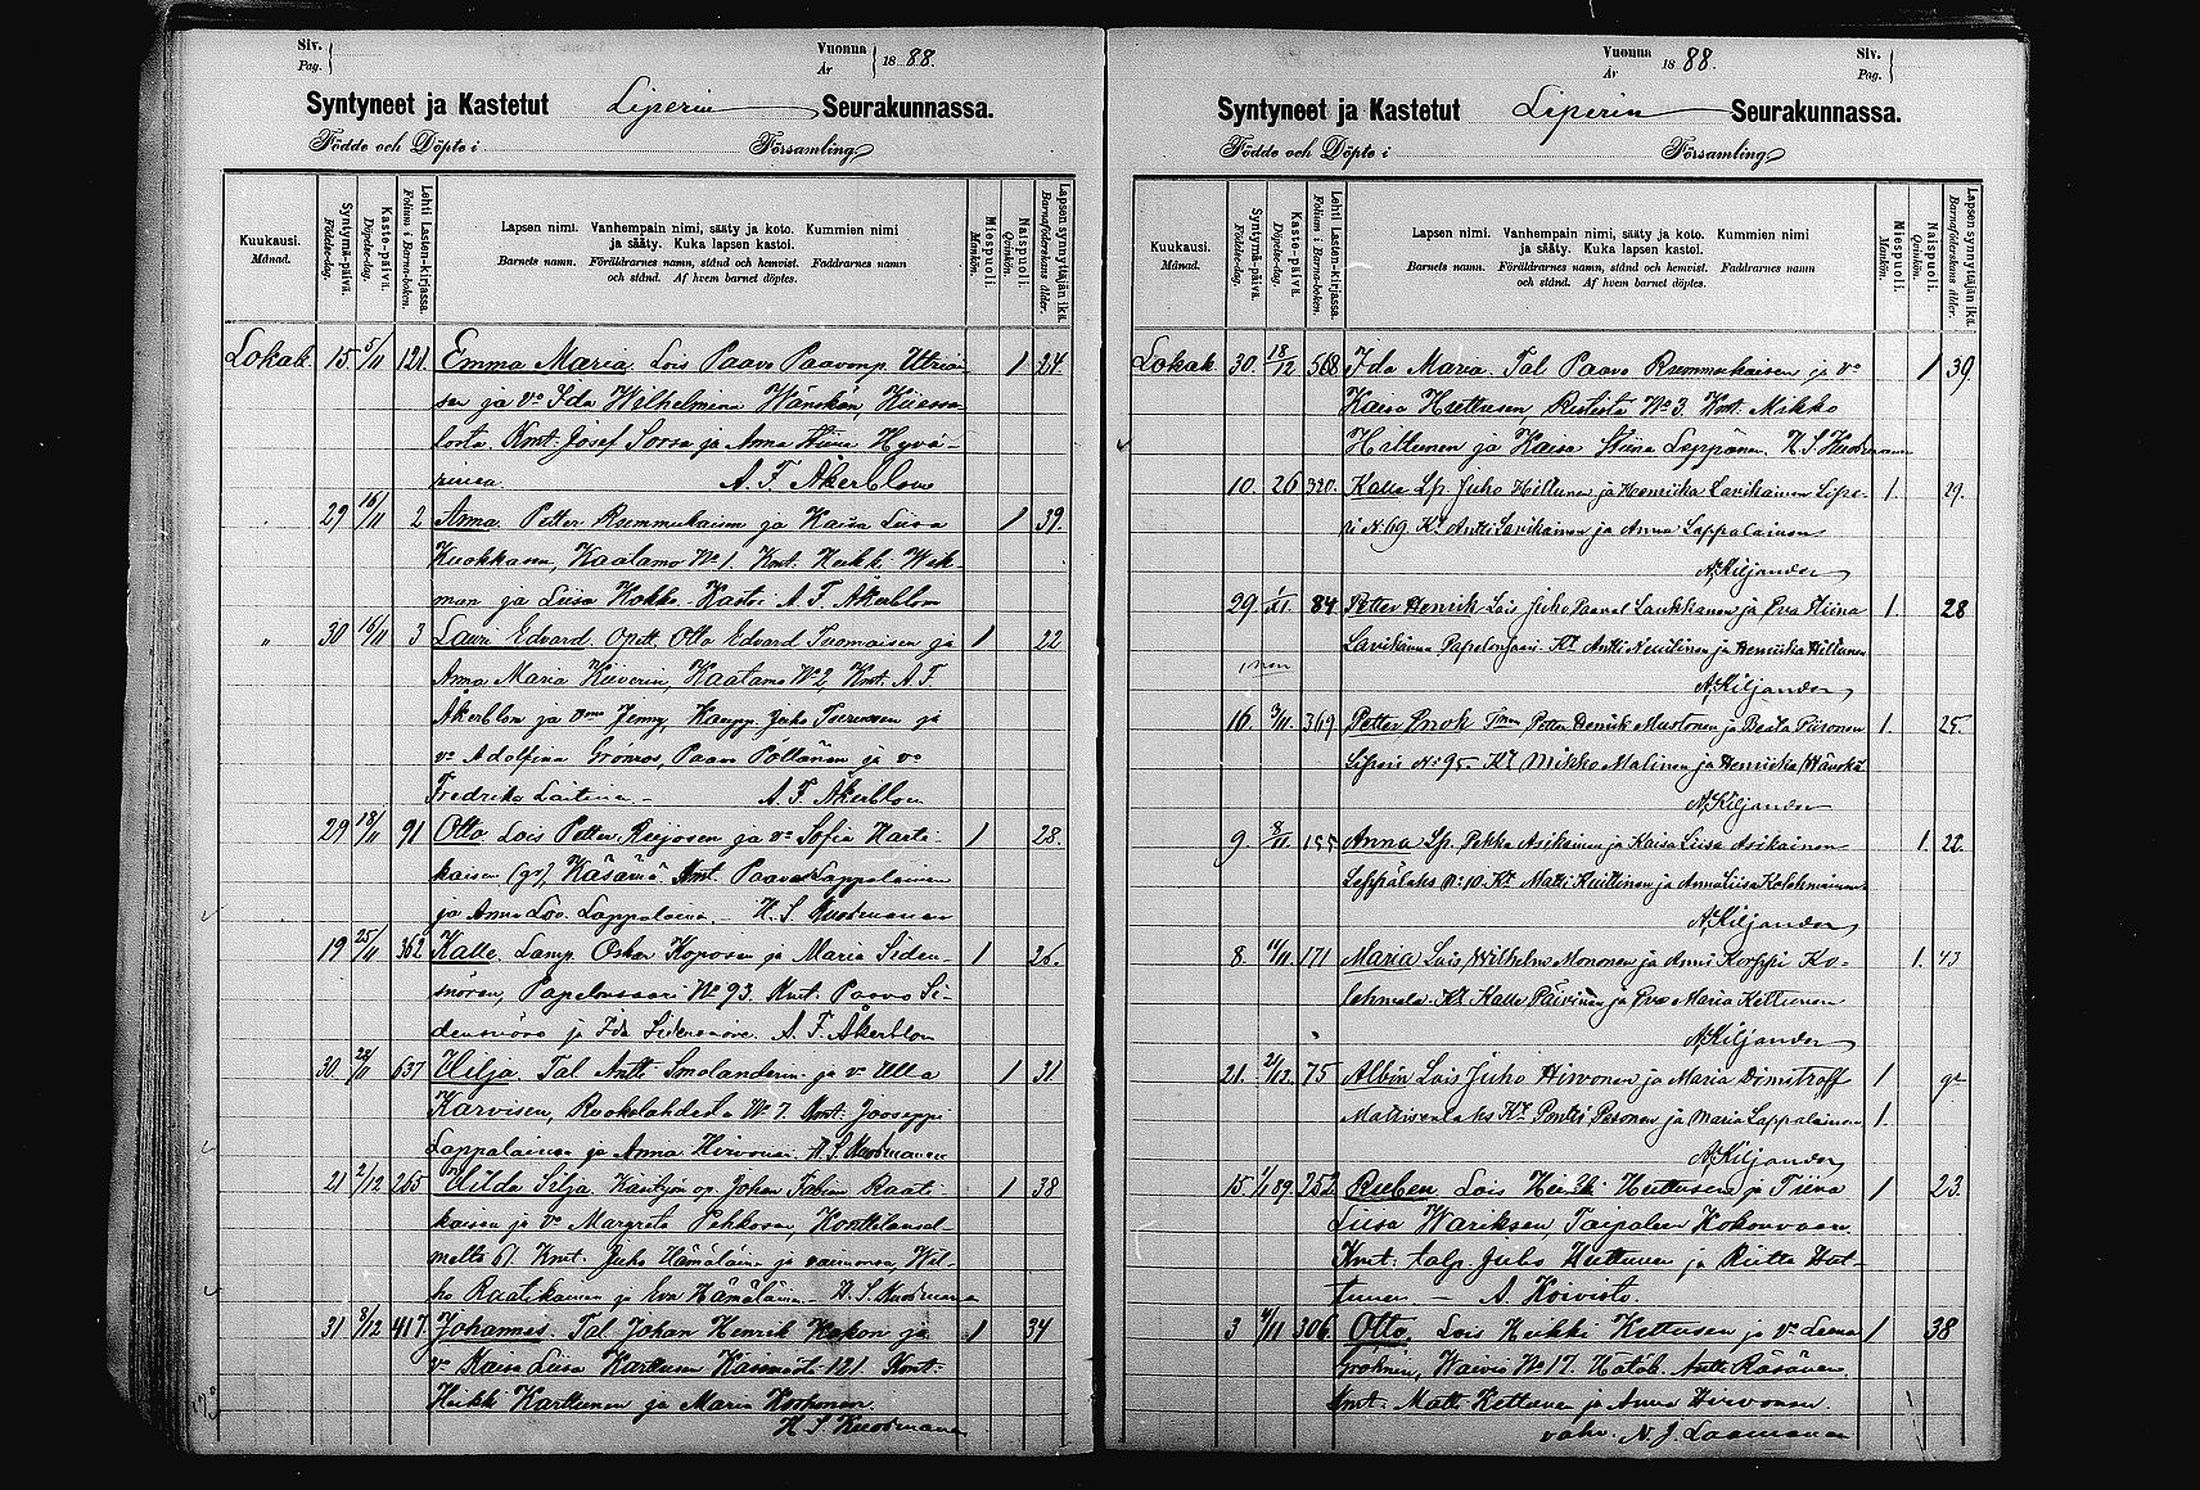 Siv.
Pag.
Vuonna
År
1888.
Syntyneet ja Kastetut Liperin Seurakunnassa.
Födde och Döpte i Församling
Kuukausi.
Månad.
Syntymä-päivä.
Födelse-dag.
Kaste-päivä.
Döpelse-dag.
Lehti Lasten-kirjassa.
Folium i Barna-boken.
Lapsen nimi. Vanhempain nimi, sääty ja koto. Kummien nimi
ja sääty. Kuka lapsen kastoi.
Barnets namn. Föräldrarnes namn, stånd och hemvist. Faddrarnes namn
och stånd. Af hvem barnet döptes.
Miespuoli.
Mankön.
Naispuoli.
Qvinkön.
Lapsen synnyttäjän ikä.
Barnaföderskans ålder.
Lokak. 15 5/11 121. Emma Maria. Lois Paavo Paavonp. Utriai- 1 24.
sen ja vo Ida Wilhelmina Wänskän,
Kmt: Josef Sorsa ja Anna Hyvä-
rinen. A. F. Åkerblom
29 16/11 2 Anna. Petter Rummukaisen ja Kaisa Liisa 1 39.
Kuokkasen, Kaatamo No 1. Kmt: Heikki Wek-
man ja Liisa Kokko. Kastoi A. F. Åkerblom
" 30 16/11 3 Lauri Edvard. Opett. Otto Edvard Tuomaisen ja 1 22
Anna Maria Kiiverin, Kaatamo No 2, Kmt. A. F.
Åkerblom ja Jenny, Kaupp. Juho ja
vo Adolfina Grönros, Paavo Pöllänen ja vo
Fredrika Laitinen. - A. F. Åkerblom
29 18/11 91 Otto. Lois Petter Reijosen ja vo Sofia Harti- 1 28.
kaisen (gr), Käsämä. Kmt. Paavo Lappalainen
ja Anna Lappalainen. - H. S. Kuosmanen
19 25/11 362 Kalle. Lamp. Oskar Koposen ja Maria Siden- 1 26.
snören, Papelonsaari No 93. Kmt. Paavo Si-
densnöre ja Ida Sidensnöre. A. F. Åkerblom
30. 637 Hilja. Tal. Antti Smolanderin ja vo Ulla 1 31.
Karvisen, Ruokolahdesta No 7. Kmt: Jooseppi
Lappalainen ja Anna Hirvonen. H. S. Kuosmanen
21 2/12 265 Hilda Silja. Johan Fabian Raati- 1 38
kaisen ja vo Margreta Pehkosen,
61. Kmt. Juho Hämäläinen ja vaimonsa, Wil-
ho Raatikainen ja Eva Hämäläinen. - H. S. Kuosmanen
31 8/12 417 Johannes. Tal. Johan Henrik Kokon ja 1 34
vo Kaisa Liisa Karttusen 121. Kmt:
Heikki Karttunen ja Maria
H. S. Kuosmanen
Vuonna
År
1888.
Siv.
Pag.
Syntyneet ja Kastetut Liperin Seurakunnassa.
Födde och Döpte i Församling
Kuukausi.
Månad.
Syntymä-päivä.
Födelse-dag.
Kaste-päivä.
Döpelse-dag.
Lehti Lasten-kirjassa.
Folium i Barna-boken.
Lapsen nimi. Vanhempain nimi, sääty ja koto. Kummien nimi
ja sääty. Kuka lapsen kastoi.
Barnets namn. Föräldrarnes namn, stånd och hemvist. Faddrarnes namn
och stånd. Af hvem barnet döptes.
Miespuoli.
Mankön.
Naispuoli.
Qvinkön.
Lapsen synnyttäjän ikä.
Barnaföderskans ålder.
Lokak. 30. 18/12 568 Ida Maria. Tal Paavo Rummukaisen ja vo 1 39.
Kaisa Huttusen, No 3. Kmt: Mikko
Hiltunen ja Kaisa Stiina Leppänen. H. S. Kuosmanen
10. 26 320. Kalle Lp. Juho Hiltunen ja Henriika Lavikainen Lipe- 1. 29.
ri No 69. Kt Antti Lavikainen ja Anna Lappalainen
A. Kiljander
29. 1/11. 84 Petter Henrik Lois Juho Laukkanen ja Eva Stiina 1. 28
Papelonsaari. Kt Antti ja Henriika Hiltunen
A. Kiljander
16. 3/11. 369 Petter Enok Petter Henrik Mustonen ja Beata Piironen 1. 25.
Liperi No 95. Kt Mikko Malinen ja Henriika Wänskä
A. Kiljander
9. 8/11. 155 Anna Lp. Pekka Asikainen ja Kaisa Liisa Asikainen 1. 22.
Leppälaks No 10. Kt Matti ja Anna Liisa Kolehmainen
A. Kiljander
8. 11/11. 171 Maria Lois Wilhelm Mononen ja Anni Korppi Ko- 1. 43
lehmala. Kt Kalle Päivinen ja Eva Maria Kettunen
A. Kiljander
21. 21/12. 75 Albin Lois Juho Hirvonen ja Maria Dimitroff 1 gr
Mattisenlaks Kt Pentti Pesonen ja Maria Lappalainen 1.
A. Kiljander
15. 1/1 89. 252 Ruben. Lois Heikki Huttusen ja Tiina 1 23.
Liisa Wariksen, Taipaleen Kokonvaara.
Kmt: talp. Juho Huttunen ja Riitta Hut-
tunen. - A. Koivisto.
3 4/11 306. Otto. Lois Heikki Kettusen ja vo Leena 1 38
Waivio No 17. Hätäk. Antti Räsänen.
Kmt: Matti Kettunen ja Anna Hirvonen.
vahv. N. J. Laamanen